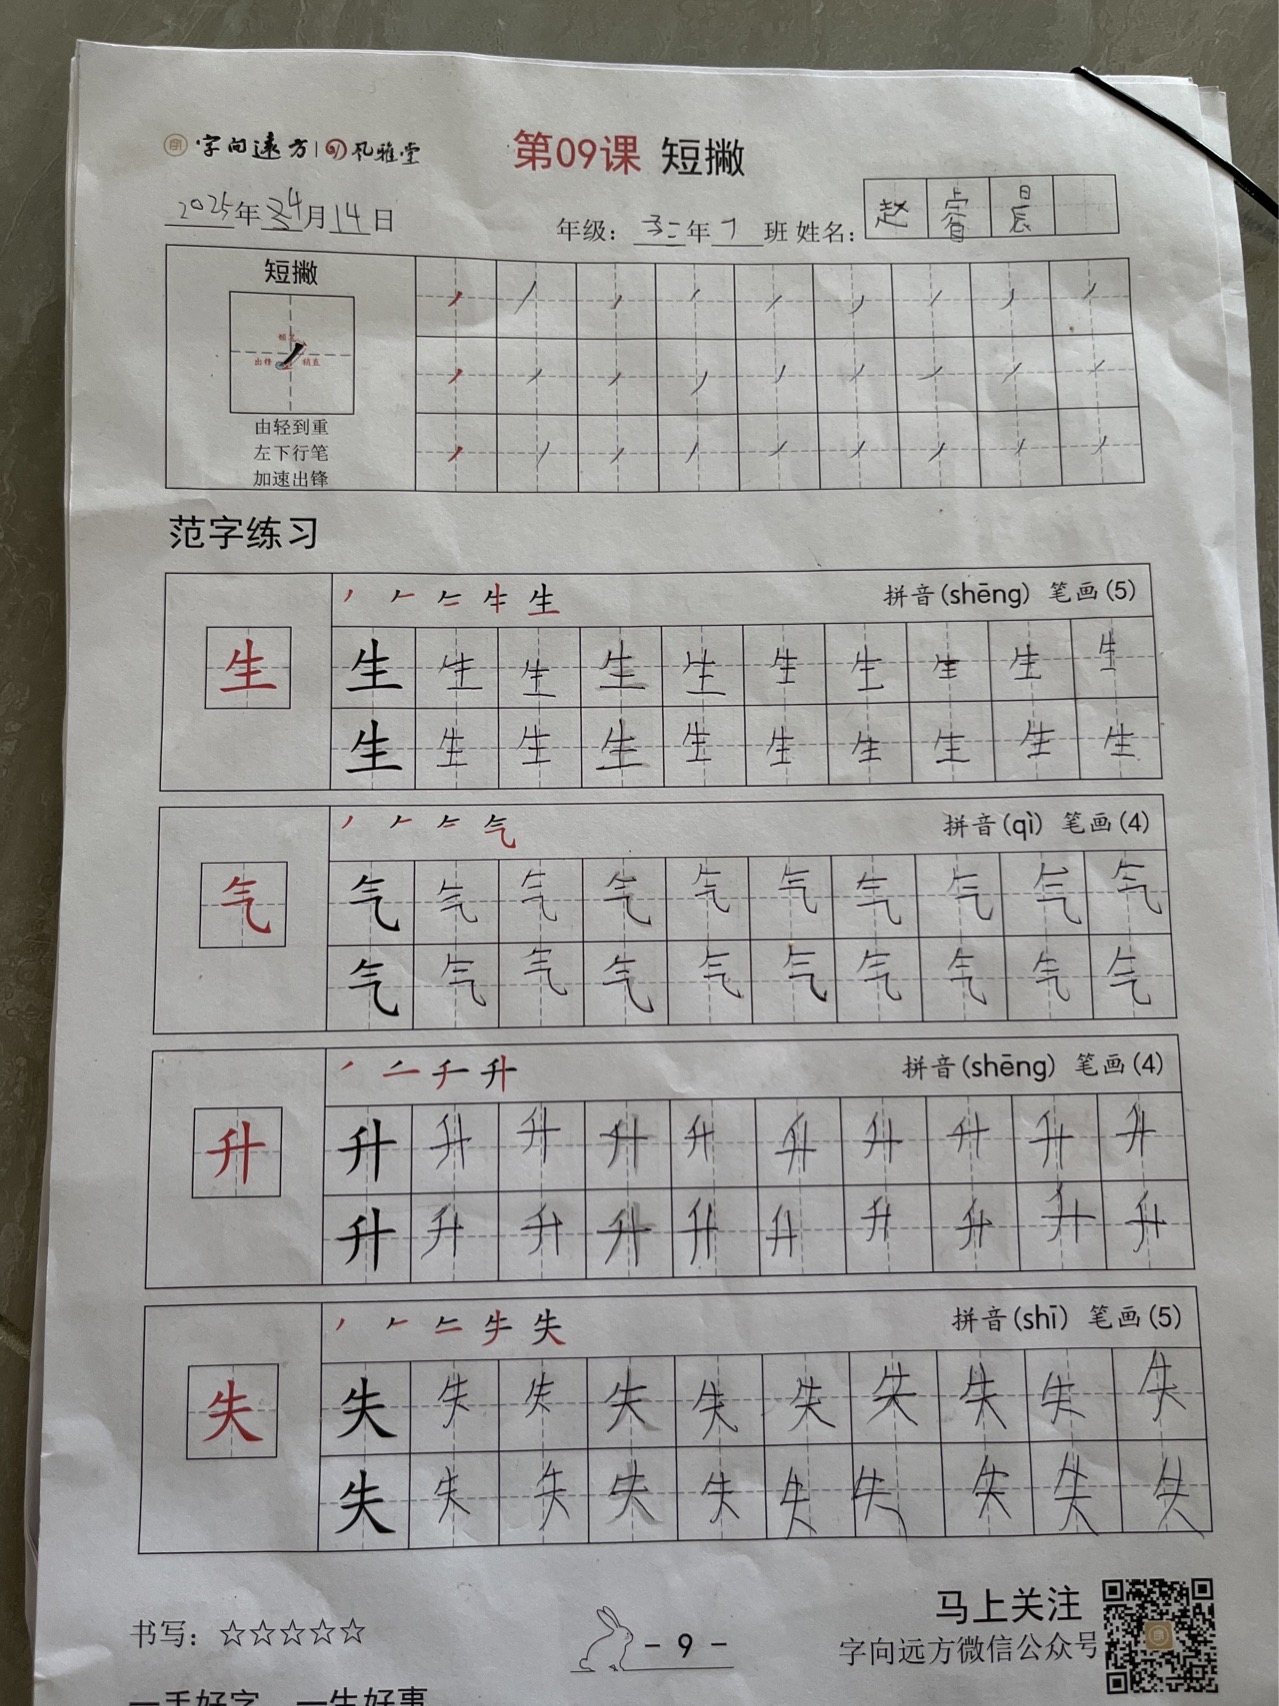 字向远方 风雅堂
第09课 短撇
2025年4月14日
年级: 二年7班 姓名: 赵睿晨
短撇
出锋 稍直
由轻到重
左下行笔
加速出锋
范字练习
拼音(shēng) 笔画(5)
生 生 生 生 生 生 生 生 生 生 生
生 生 生 生 生 生 生 生 生 生
拼音(qì) 笔画(4)
气 气 气 气 气 气 气 气 气 气 气
气 气 气 气 气 气 气 气 气 气
拼音(shēng) 笔画(4)
升 升 升 升 升 升 升 升 升 升 升
升 升 升 升 升 升 升 升 升 升
拼音(shī) 笔画(5)
失 失 失 失 失 失 失 失 失 失 失
失 失 失 失 失 失 失 失 失 失
书写: ☆☆☆☆☆
- 9 -
马上关注
字向远方微信公众号
一手好字 一生好事